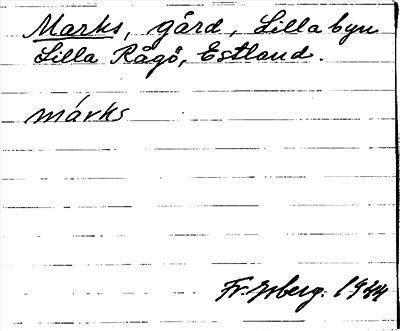 Marks, gård, Lilla byn
Lilla Rågö, Estland.
márks
Fr. Isberg. 1944